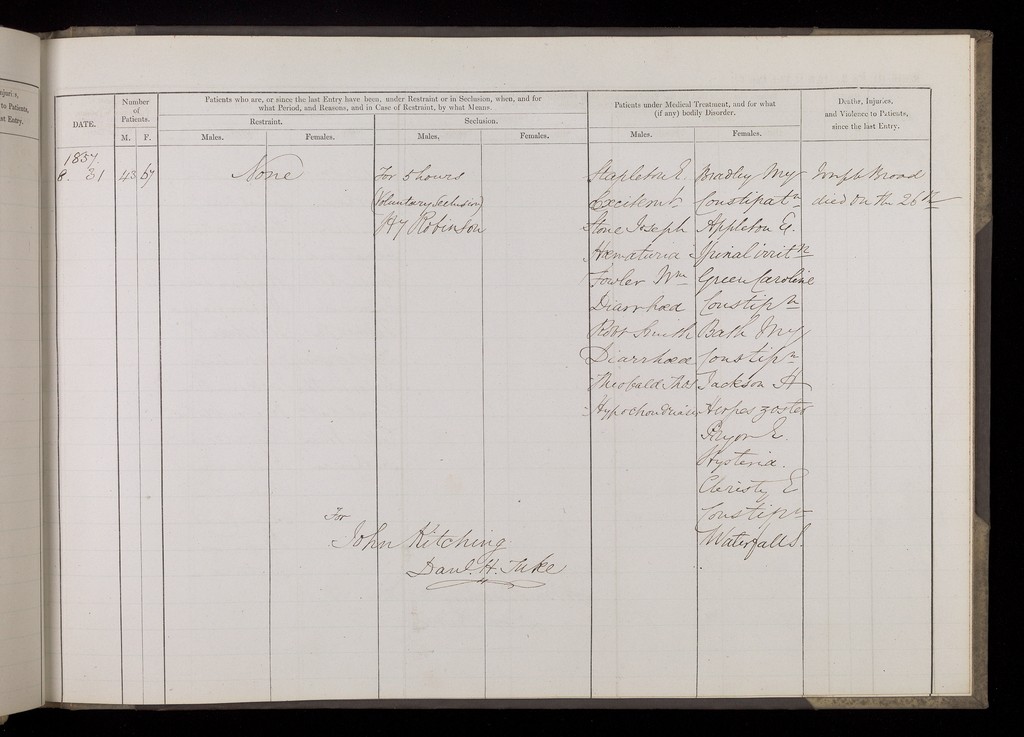 njuries,
to Patients,
st Entry.
DATE.
Number
of
Patients.
M. F.
Patients who are, or since the last Entry have been, under Restraint or in Seclusion, when, and for
what Period, and Reasons, and in Case of Restraint, by what Means.
Restraint.
Seclusion.
Males. Females. Males. Females.
Patients under Medical Treatment, and for what
(if any) bodily Disorder.
Males. Females.
Deaths, Injuries,
and Violence to Patients,
since the last Entry.
1857.
8. 31
43 67
None
For 5 hours
(Voluntary Seclusion)
Hy Robinson
Stapleton E.
Excitemt
Stone Joseph
Hæmaturia
Fowler Wm
Diarrhœa
Robt Smith
Diarrhœa
Theobald Thos
Bradley My
Constipatn
Appleton E.
Spinal irritn
Green Caroline
Constipn
Bath My
Constipn
Jackson H
Herpes zoster
Pryor E.
Hysteria.
Christy E
Constipn
Waterfall S.
Joseph
died on the 26th
For
John Kitching
Danl. H. Tuke